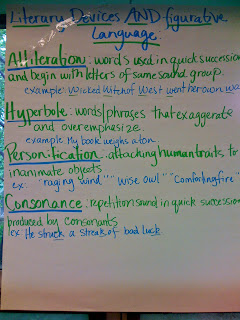 Literary Devices AND figurative
Language:
Alliteration: words used in quick succession
and begin with letters of same sound group.
example: Wicked Witch of West went her own wa
Hyperbole: words/phrases that exaggerate
and overemphasize.
example: My book weighs a ton.
Personification: attaching human traits to
inanimate objects
ex: "raging wind" "wise owl" "comforting fire"
Consonance: repetition sound in quick succession
produced by consonants
ex: He struck a streak of bad luck.